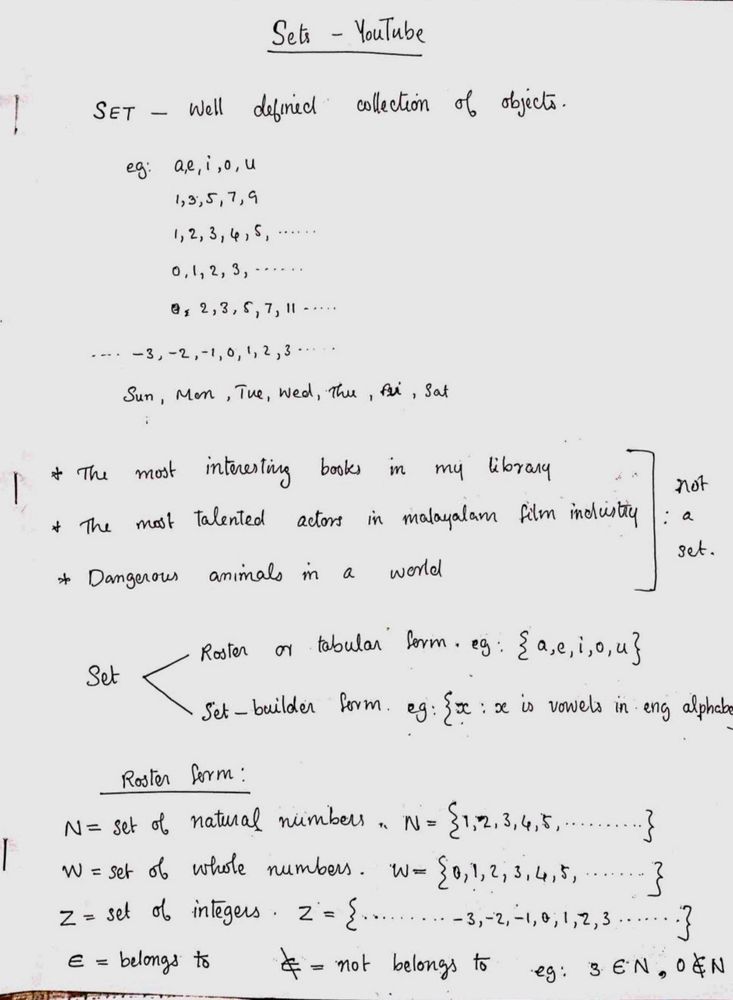 Sets - YouTube
SET - Well defined collection of objects.
eg: a,e, i, o, u
1,3,5,7,9
1,2,3,4,5, ......
0,1,2,3, ......
2,3,5,7,11 .....
.... -3,-2,-1,0,1,2,3 .....
Sun, Mon, Tue, Wed, Thu, Fri, Sat
* The most interesting books in my library
* The most talented actors in malayalam film industry
* Dangerous animals in a world
not
: a
set.
Set
Roster or tabular form. eg: {a,e,i,o,u}
Set-builder form. eg: {x : x is vowels in eng alphabe
Roster form:
N = set of natural numbers. N = {1,2,3,4,5, ..........}
W = set of whole numbers. W = {0,1,2,3,4,5, .......}
Z = set of integers. Z = {......... -3,-2,-1,0,1,2,3 .......}
∈ = belongs to ∉ = not belongs to eg: 3 ∈ N, 0 ∉ N